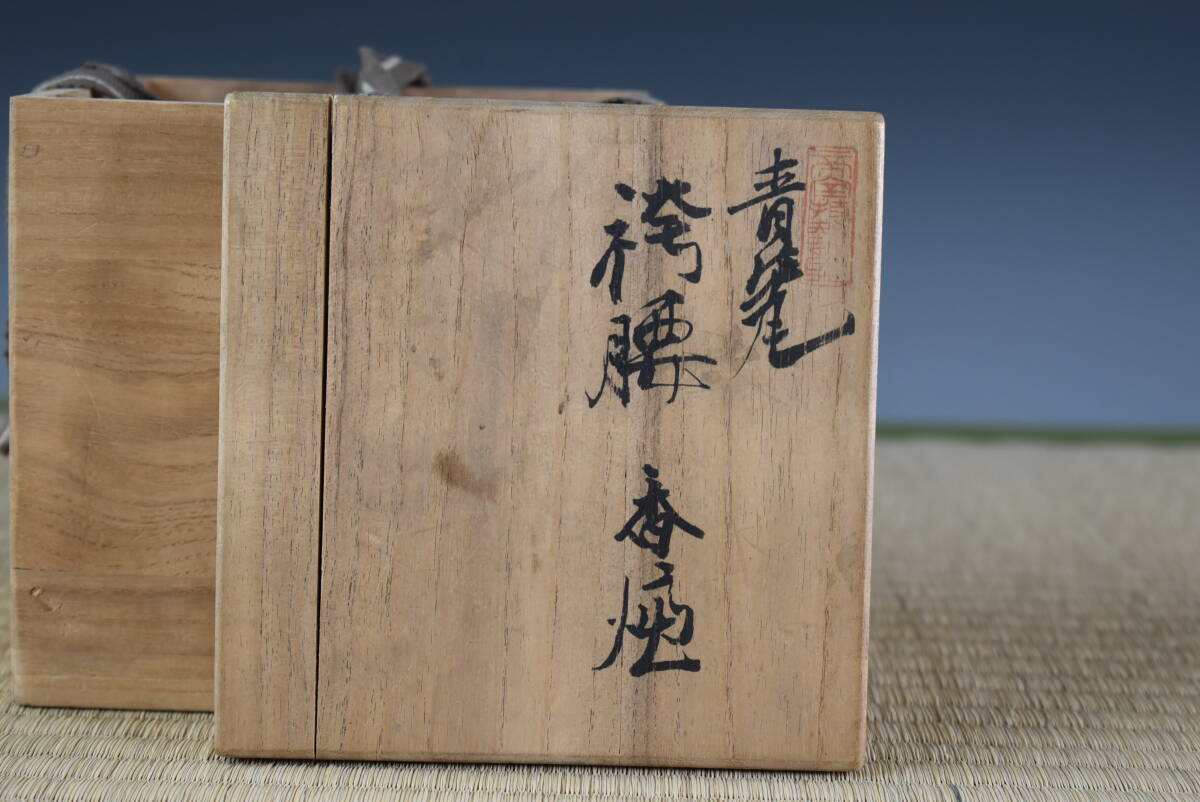 青瓷
袴腰 香炉